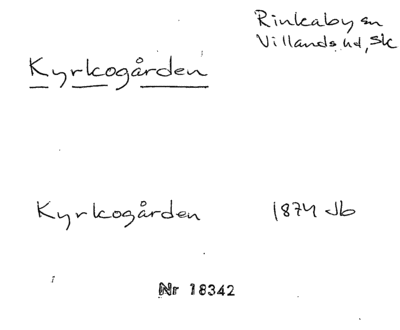 Rinkaby sn
Villands hd, Sk
Kyrkogården
Kyrkogården 1874 Jb
Nr 18342